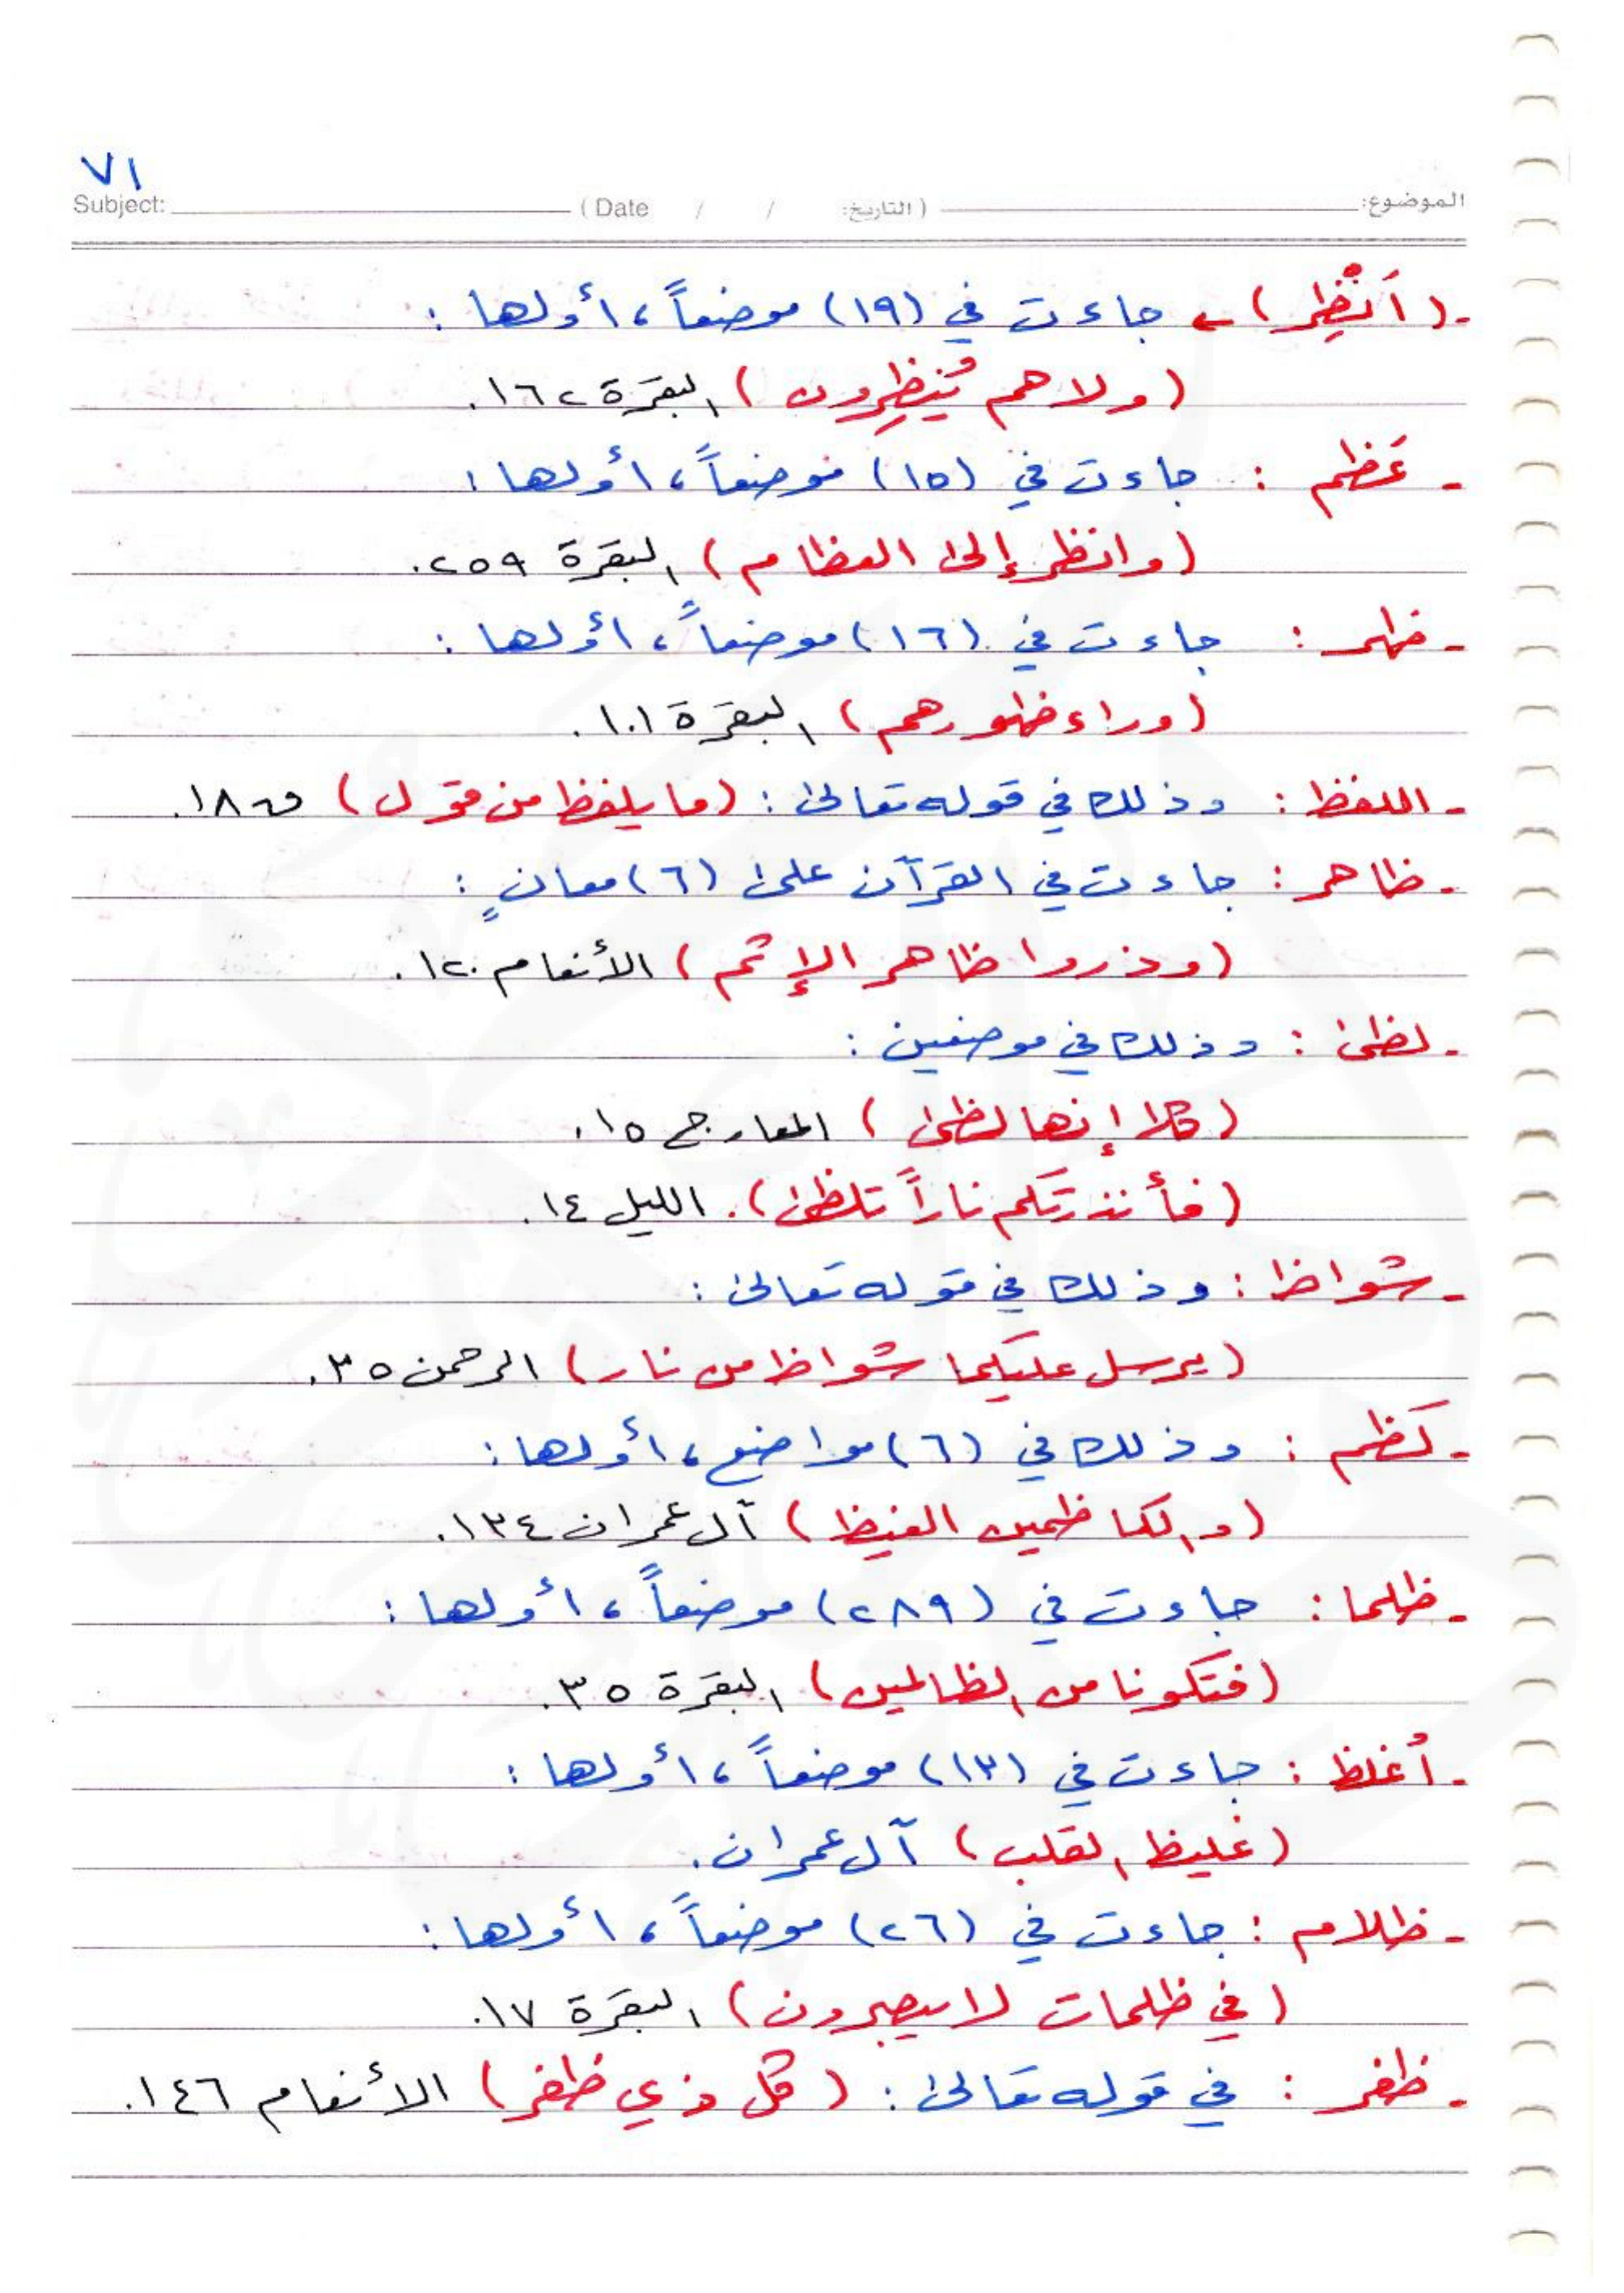 ٧١
Subject: (Date / / التاريخ:) الموضوع:
- (أَنْظِر) ← جاءت في (١٩) موضعاً، أولها :
(ولا هم يُنظِرون) البقرة ١٦٢.
- عَظم : جاءت في (١٥) موضعاً، أولها :
(وانظر إلى العظام) البقرة ٢٥٩.
- ظهر : جاءت في (١٦) موضعاً، أولها :
(وراء ظهورهم) البقرة ١٠١.
- اللفظ : وذلك في قوله تعالى : (ما يلفظ من قول) ق ١٨.
- ظاهر : جاءت في القرآن على (٦) معانٍ :
(وذروا ظاهر الإثم) الأنعام ١٢٠.
- لظى : وذلك في موضعين :
(كلا إنها لظى) المعارج ١٥.
(فأنذرتكم ناراً تلظى). الليل ١٤.
- شواظ : وذلك في قوله تعالى :
(يرسل عليكما شواظ من نار) الرحمن ٣٥.
- كَظم : وذلك في (٦) مواضع، أولها :
(والكاظمين الغيظ) آل عمران ١٣٤.
- ظلما : جاءت في (٢٨٩) موضعاً، أولها :
(فتكونا من الظالمين) البقرة ٣٥.
- أُغلظ : جاءت في (١٣) موضعاً، أولها :
(غليظ القلب) آل عمران.
- ظلام : جاءت في (٢٦) موضعاً، أولها :
(في ظلمات لا يبصرون) البقرة ١٧.
- ظفر : في قوله تعالى : (كل ذي ظفر) الأنعام ١٤٦.